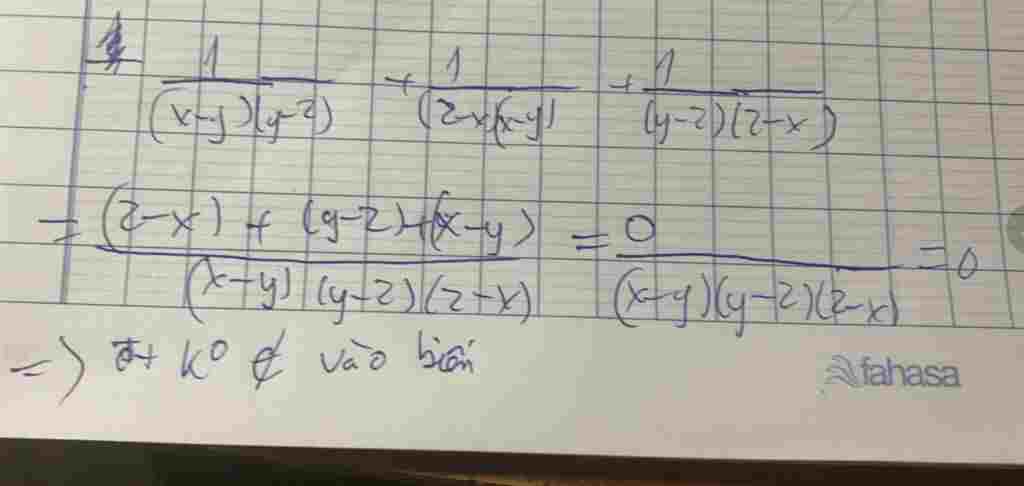 1/((x-y)(y-z)) + 1/((z-x)(x-y)) + 1/((y-z)(z-x))
= ((z-x) + (y-z) + (x-y))/((x-y)(y-z)(z-x)) = 0/((x-y)(y-z)(z-x)) = 0
=> k⁰ ∉ vào biến
fahasa